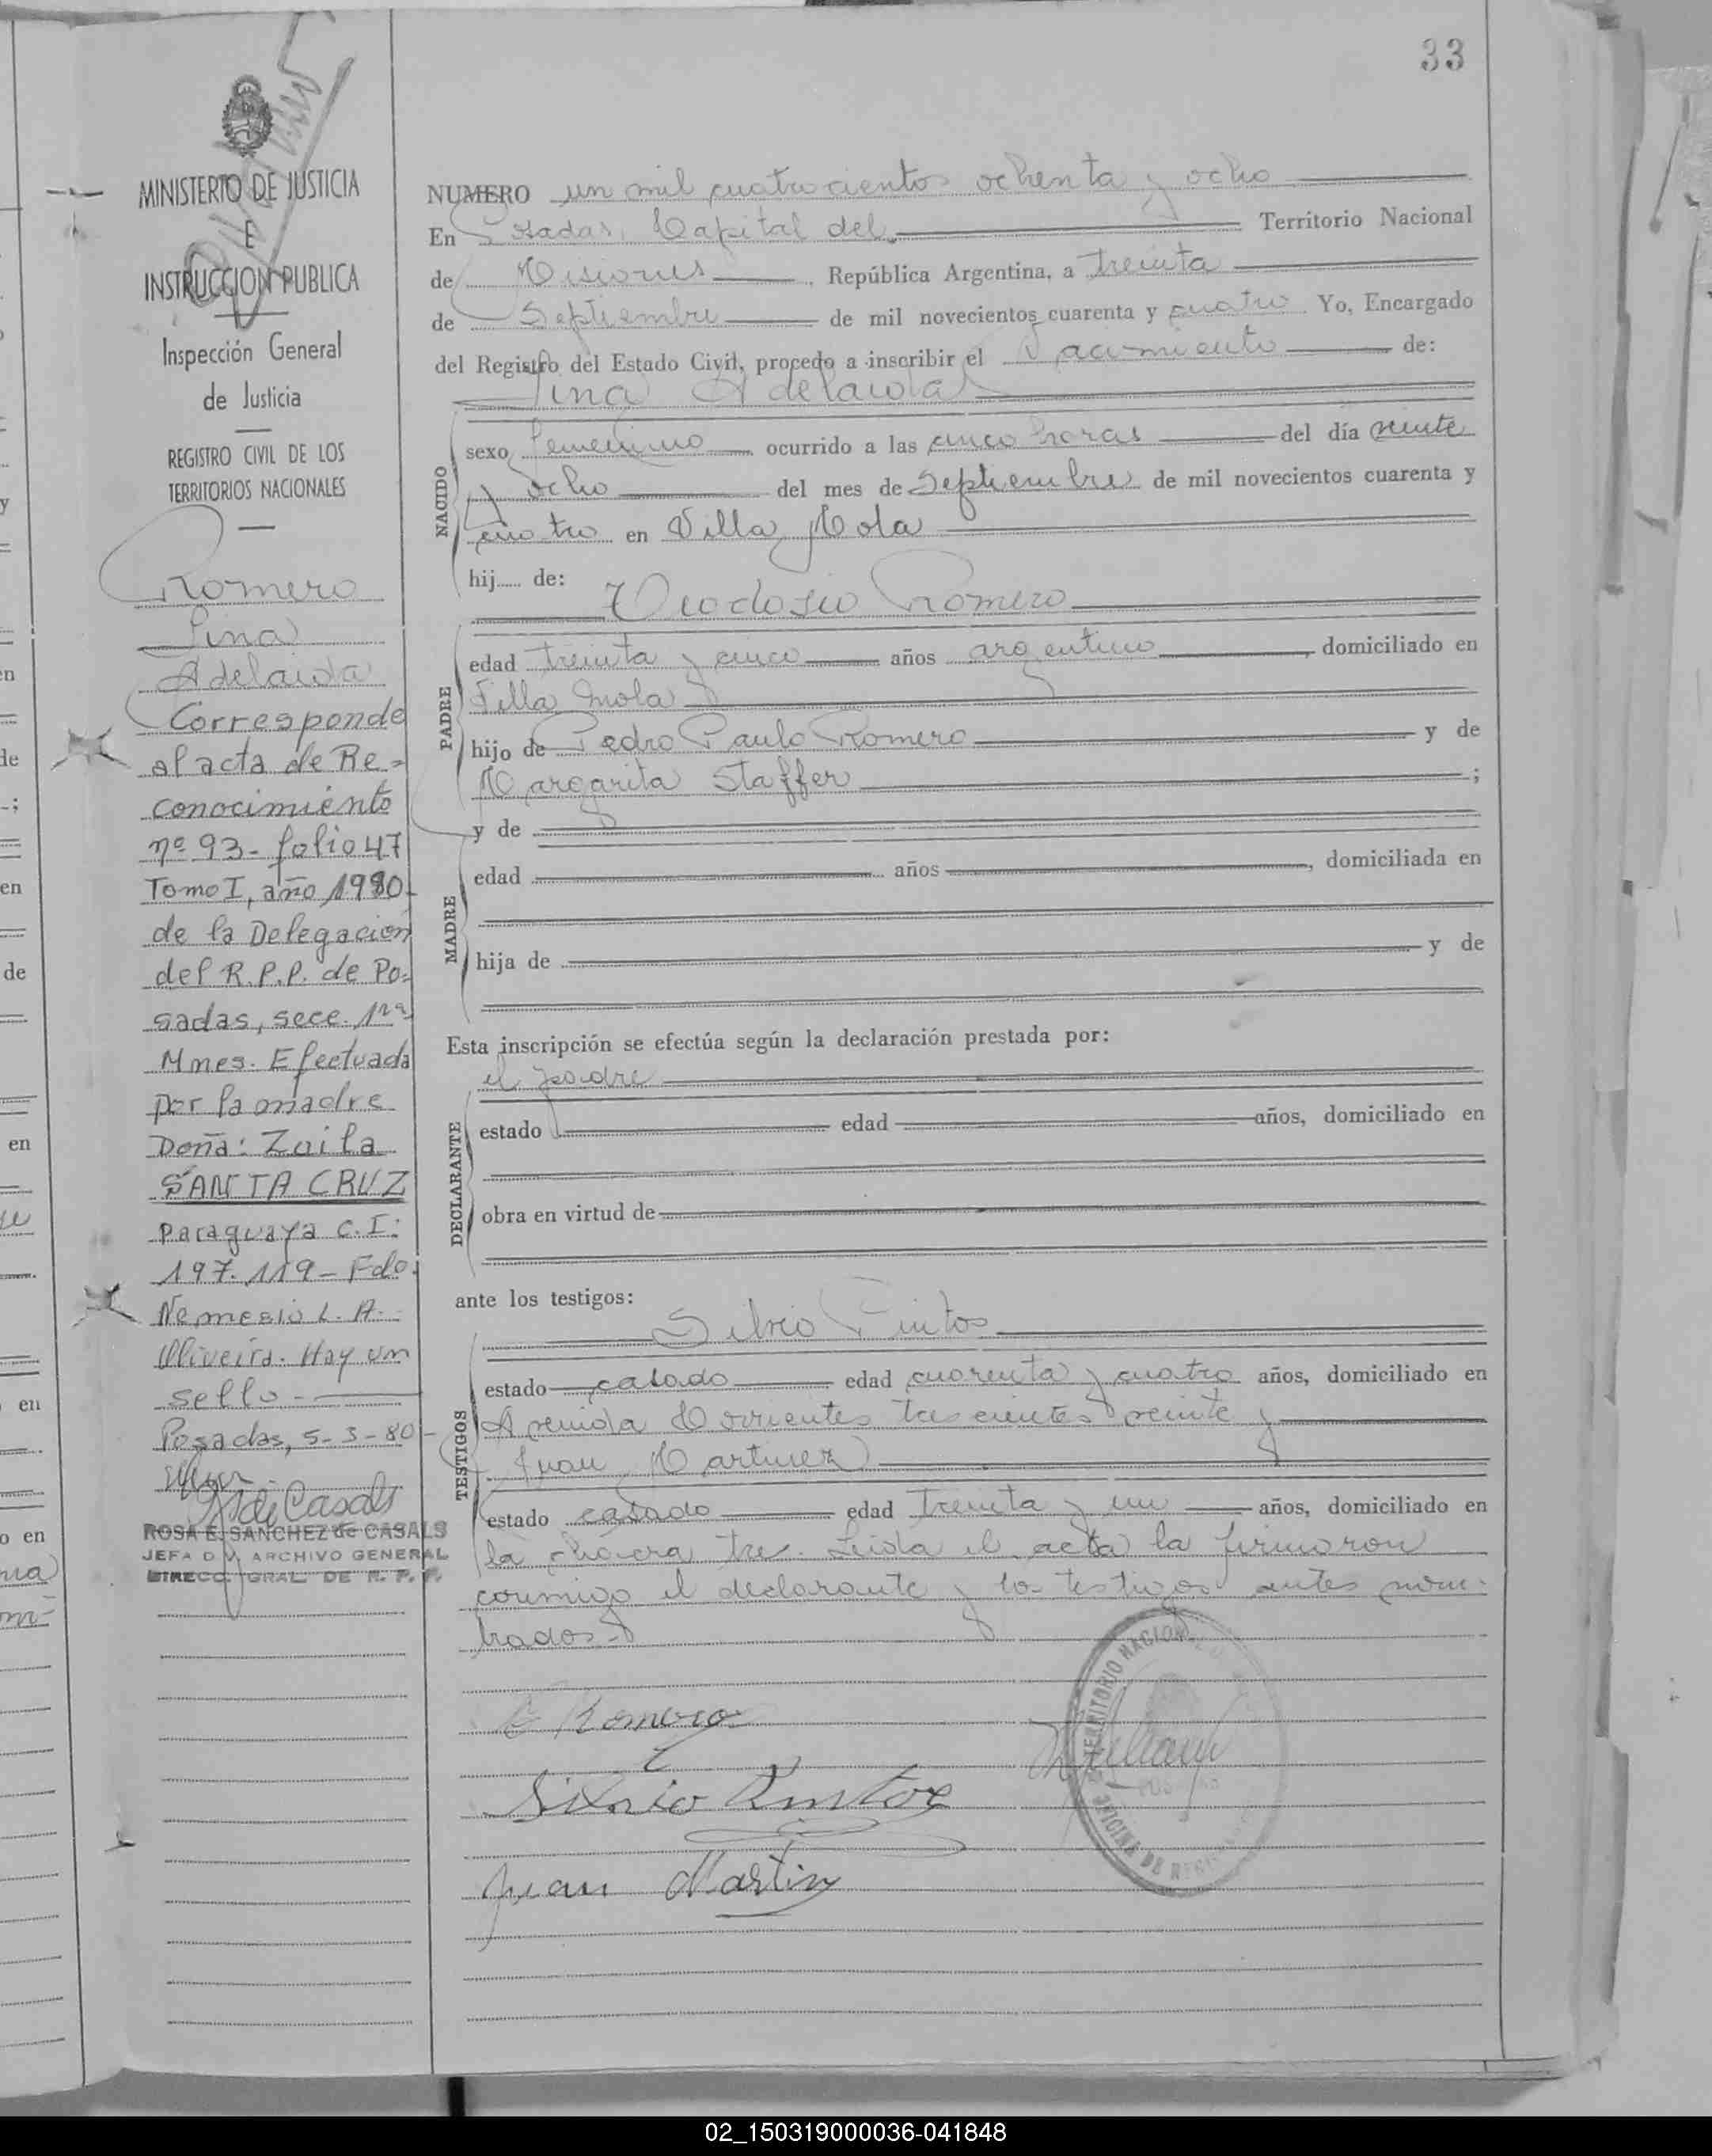 33
MINISTERIO DE JUSTICIA
E
INSTRUCCION PUBLICA
Inspección General
de Justicia
REGISTRO CIVIL DE LOS
TERRITORIOS NACIONALES
Romero
Lina
Adelaida
Corresponde
al acta de Re-
conocimiento
nº 93- folio 47
Tomo I, año 1980-
de la Delegación
del R.P.P. de Po-
sadas, secc. 1ra
Mnes. Efectuada
por la madre
Doña: Zuila
SANTA CRUZ
Paraguaya C.I:
197.119- Fdo:
Nemesio L. A.
Oliveira. Hay un
sello-
Posadas, 5-3-80-
de Casals
ROSA E. SANCHEZ de CASALS
JEFA DIV. ARCHIVO GENERAL
DIRECC. GRAL. DE R. P. P.
NUMERO un mil cuatrocientos ochenta y ocho
En Posadas, Capital del Territorio Nacional
de Misiones, República Argentina, a treinta
de Septiembre de mil novecientos cuarenta y cuatro Yo, Encargado
del Registro del Estado Civil, procedo a inscribir el Nacimiento de:
Lina Adelaida
NACIDO
sexo femenino ocurrido a las cinco horas del día veinte
y ocho del mes de Septiembre de mil novecientos cuarenta y
cuatro en Villa Mola
hij de:
Teodosio Romero
PADRE
edad treinta y cinco años argentino, domiciliado en
Villa Mola
hijo de Pedro Paulo Romero y de
Margarita Staffer ;
y de
MADRE
edad años , domiciliada en
hija de y de
Esta inscripción se efectúa según la declaración prestada por:
el padre
DECLARANTE
estado edad años, domiciliado en
obra en virtud de
ante los testigos:
Silvio Pintos
TESTIGOS
estado casado edad cuarenta y cuatro años, domiciliado en
Avenida Corrientes trescientos veinte y
Juan Martinez
estado casado edad treinta y un años, domiciliado en
la chacra tres. Leida el acta la firmaron
conmigo el declarante y los testigos antes nom-
brados.
Romero
Silvio Pintos
Juan Martinz
TERRITORIO NACIONAL
OFICINA DE
02_150319000036-041848